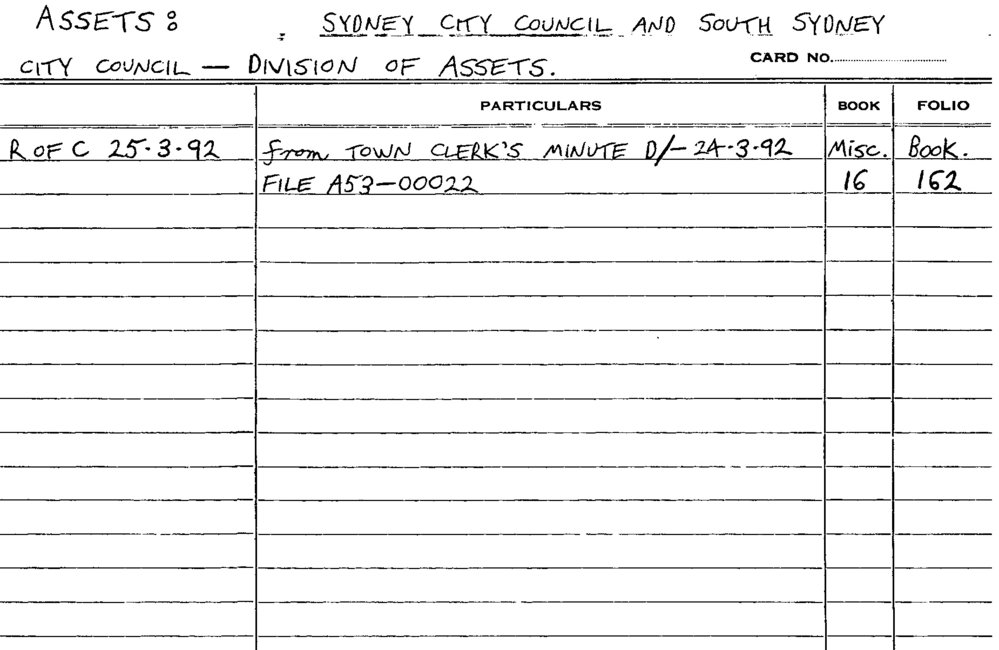 ASSETS: SYDNEY CITY COUNCIL AND SOUTH SYDNEY
CITY COUNCIL — DIVISION OF ASSETS. CARD NO.
PARTICULARS BOOK FOLIO
R OF C 25·3·92 from TOWN CLERK'S MINUTE D/- 24·3·92 Misc. Book.
FILE A53-00022 16 162